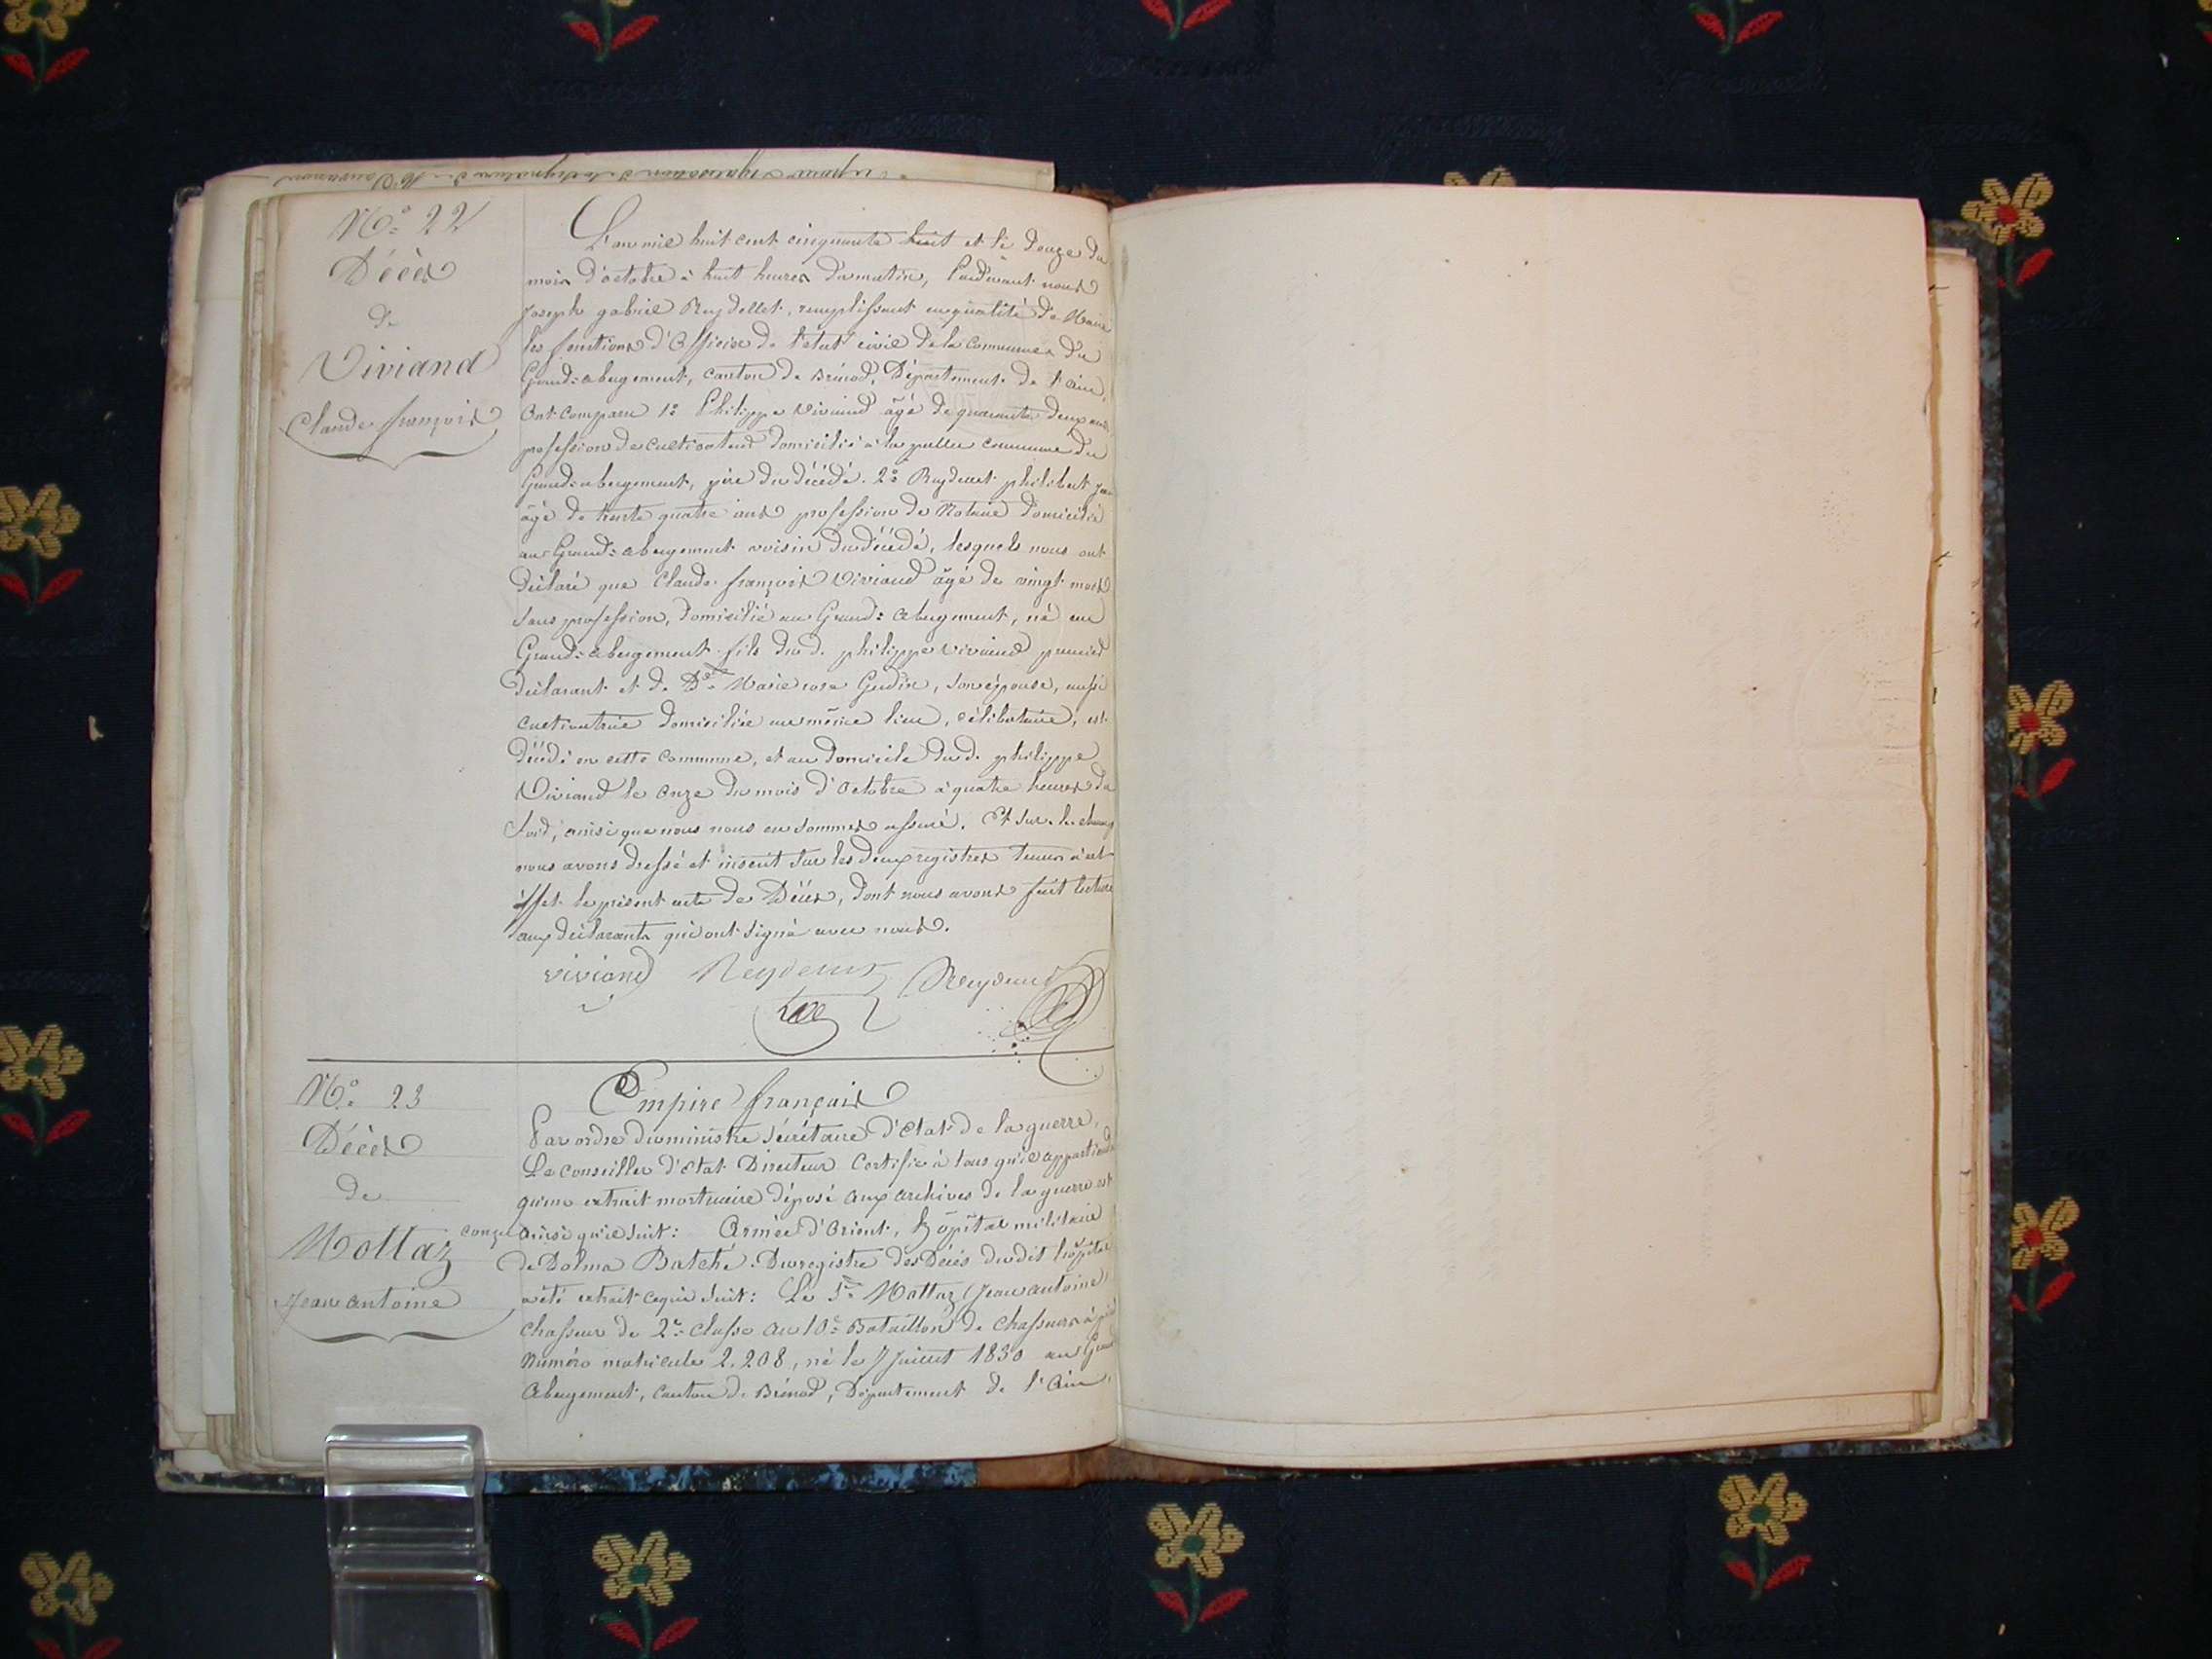 No 22
Décès
de
Viviand
Claude françois
L'an mil huit cent cinquante huit et le douze du
mois d'octobre à huit heures du matin, Pardevant nous
Joseph gabriel Reydellet, remplissant en qualité de Maire
les fonctions d'Officier de l'état civil de la commune du
Grand-abergement, canton de Brénod, Département de l'ain,
Ont comparu 1o Philippe Viviand âgé de quarante deux ans,
profession de cultivateur domicilié à la commune du
Grand-abergement, père du décédé. 2o Reydellet philibert
âgé de trente quatre ans profession de Notaire domicilié
au Grand-abergement voisin du décédé, lesquels nous ont
déclaré que Claude françois Viviand âgé de vingt mois
sans profession, domicilié au Grand-abergement, né au
Grand-abergement fils du d. philippe viviand premier
déclarant et de De Marie rose Gudin, son épouse, aussi
cultivatrice domiciliée au même lieu, célibataire, est
décédé en cette commune, et au domicile du d. philippe
Viviand le onze du mois d'Octobre à quatre heures du
soir, ainsi que nous nous en sommes assuré. Et sur-le-champ
nous avons dressé et inscrit sur les deux registres tenus à cet
effet le présent acte de Décès, dont nous avons fait lecture
aux déclarants qui ont signé avec nous.
viviand Reydellet Reydellet
No 23
Décès
de
Mottaz
Jean antoine
Empire français
Par ordre du ministre sécrétaire d'état de la guerre,
Le conseiller d'état Directeur Certifie à tous qu'il appartiendra
qu'un extrait mortuaire déposé aux archives de la guerre est
conçu ainsi qu'il suit: Armée d'Orient, hôpital militaire
de Dolma Batché. Du registre des Décès dudit hôpital
a été extrait ce qui suit: Le Sr Mottaz (Jean antoine)
chasseur de 2e classe au 10e Bataillon de chasseurs à pied
Numéro matricule 2.208, né le 7 Juillet 1830 au Grand
abergement, canton de Brénod, Département de l'Ain,